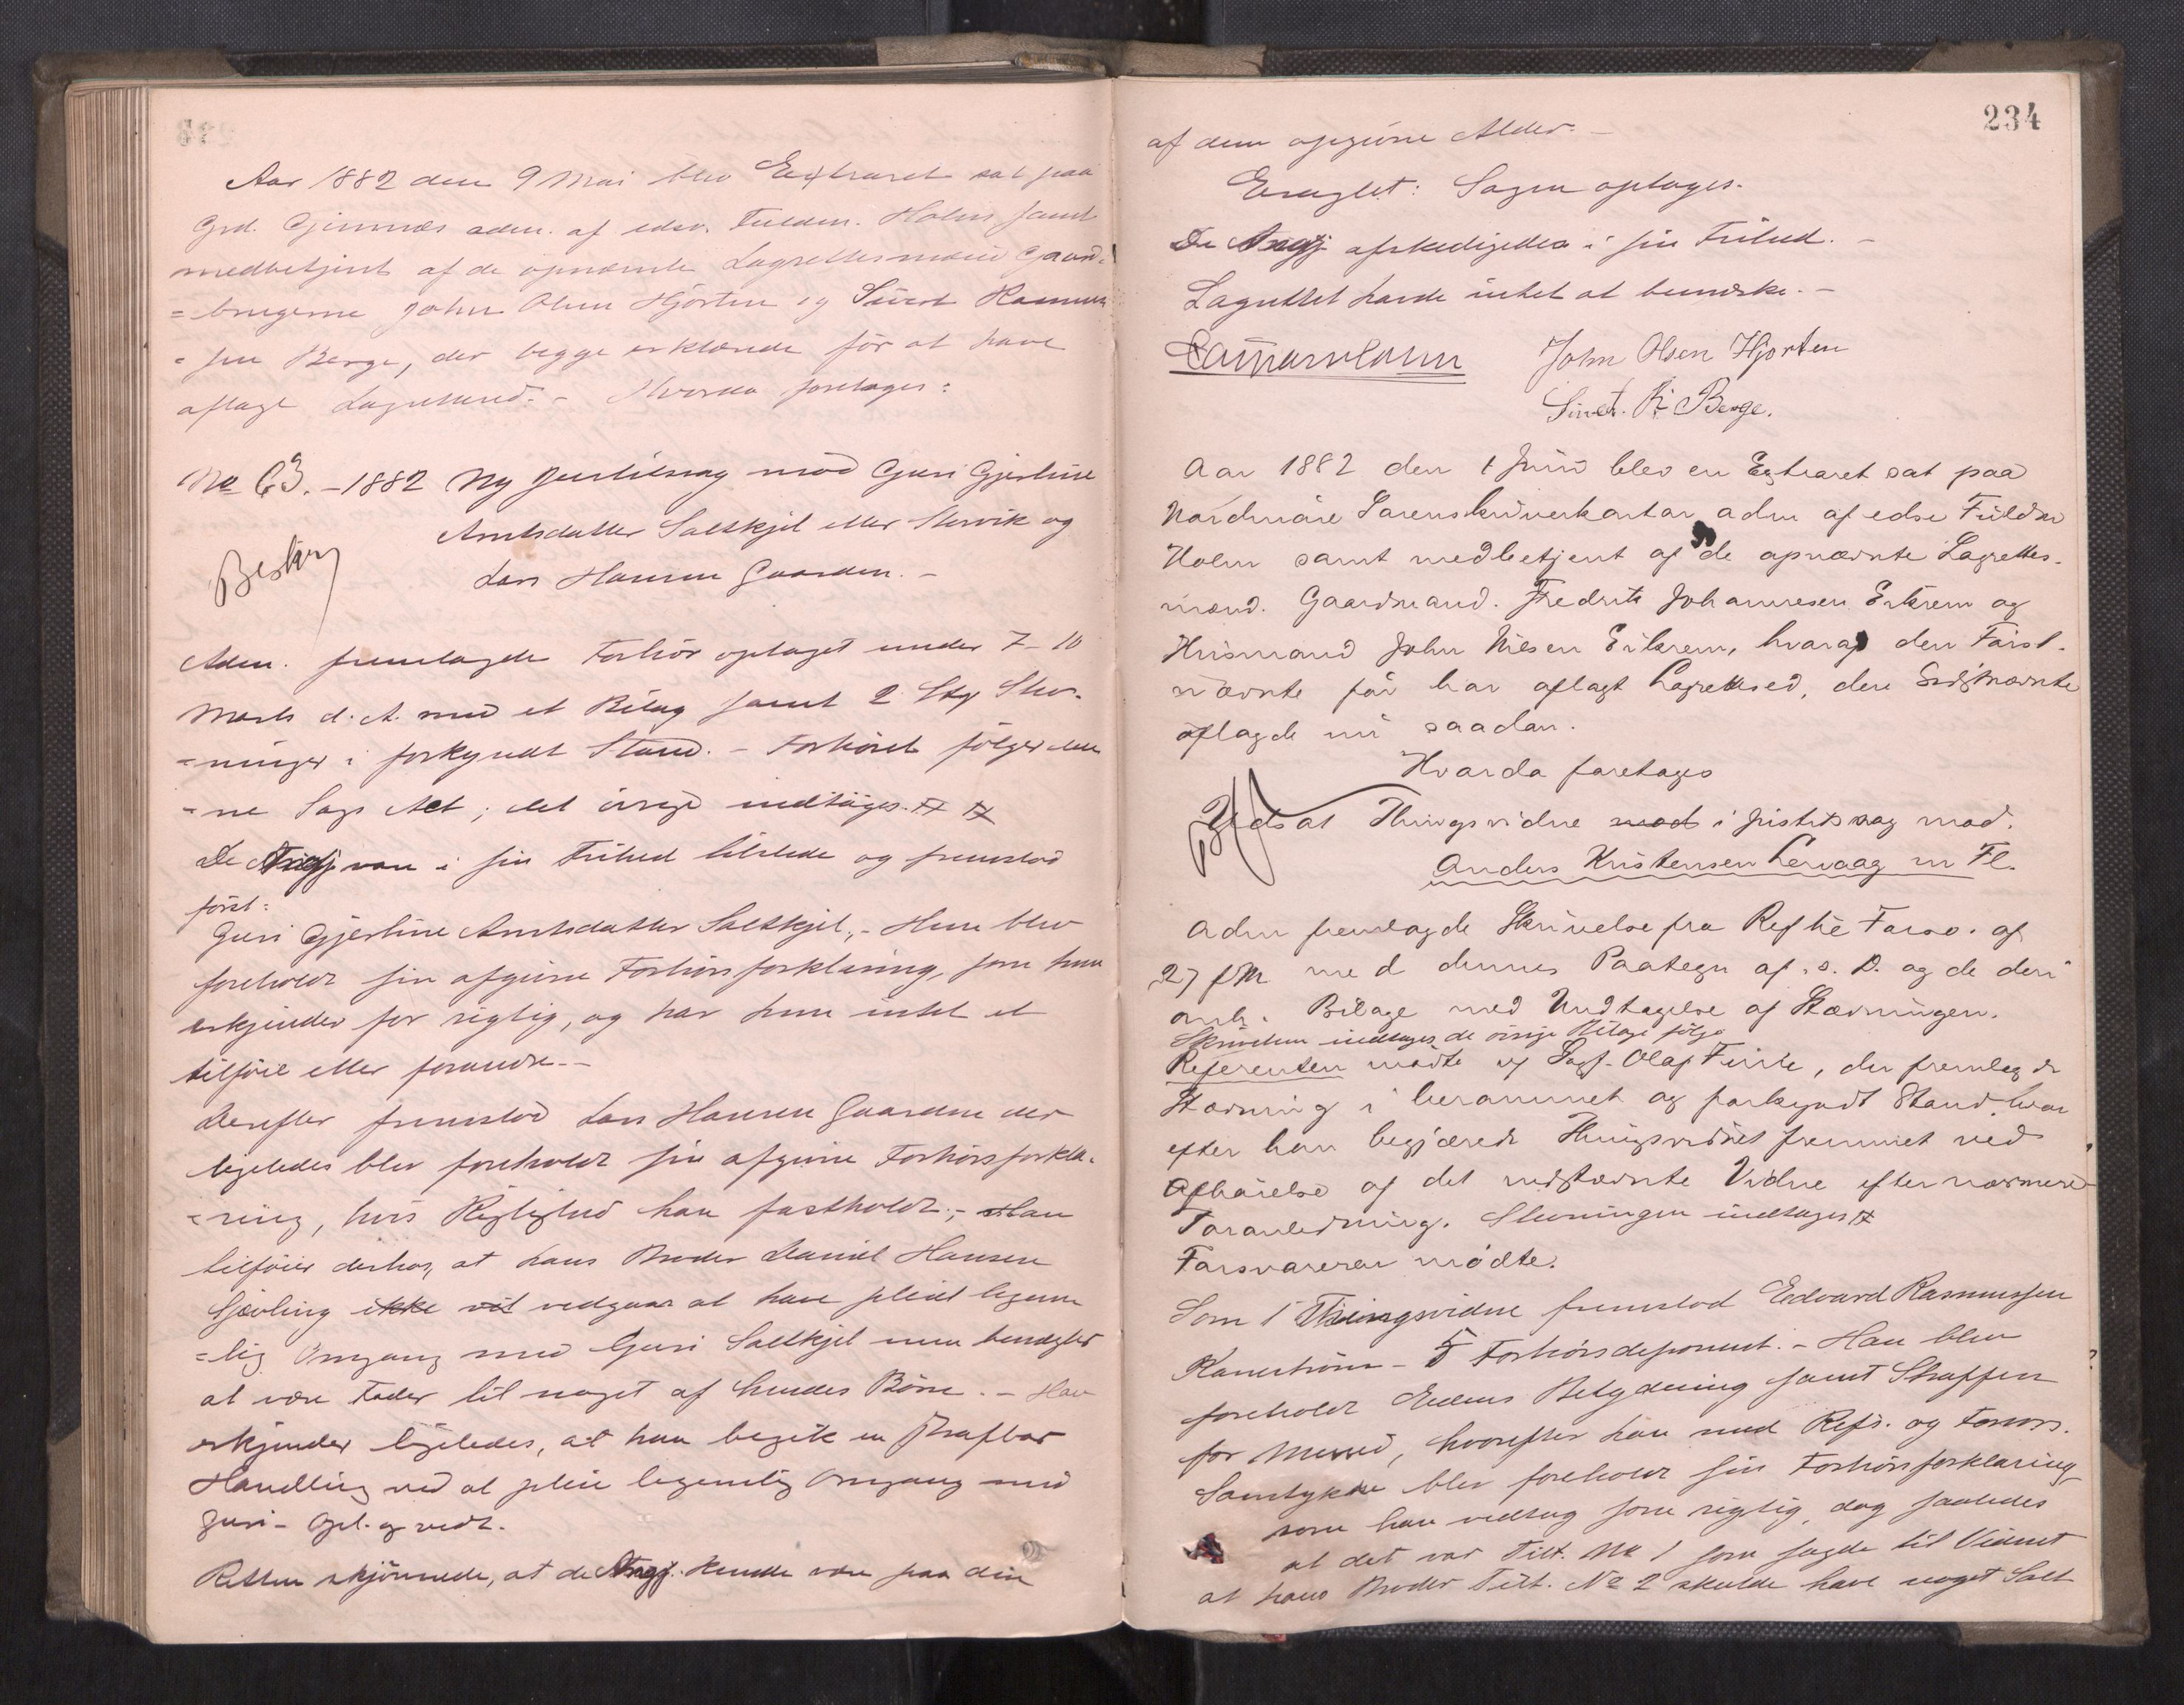 Aar 1882 den 9 Mai blev Extraret sat paa
Grd. Gjimnæs adm. af edsv. Fuldm. Holm samt
medbetjent af de opnævnte Lagrettesmænd Gaard-
=brugerne John Olsen Hjorten og Sivert Rasmus
=sen Berge, der begge erklærede før at have
aflagt Lagretteed. - Hvorda foretages:
No 63. - 1882 Ny Justitssag mod Guri Gjertine
Arntsdatter Saltkjel eller Storvik og
Lars Hansen Gaarden. -
Adm. fremlagde Forhør optaget under 7-10
Marts d. A. med et Bilag samt 2 Stkr Stev-
=ninger i forkyndt Stand. - Forhøret følger den
=ne Sags Act; det øvrige indtages.
De Angj. var i sin Frihed tilstede og fremstod
først:
Guri Gjertine Arntsdatter Saltkjel, - Hun blev
foreholdt sin afgivne Forhørsforklaring, som hun
erkjender for rigtig, og har hun intet at
tilføie eller forandre. -
Derefter fremstod Lars Hansen Gaarden der
ligeledes blev foreholdt sin afgivne Forhørsforkla-
=ring, hvis Rigtighed han fastholdt; - Han
tilføier derhos, at hans Broder Daniel Hansen
ikke vil vedgaar at have pleiet legem
=lig Omgang med Guri Saltkjel men benægter
at være Fader til noget af hendes Børn. - Han
erkjender ligeledes, at han begik en strafbar
Handling ved at pleie legemlig Omgang med
Guri - Opl. og vedt.
Retten skjønnede, at de Angj. kunde være paa den
234
af dem opgivne Alder. -
Eragtet: Sagen optages.
De Angj afskedigedes i sin Frihed. -
Lagrettet havde intet at bemærke. -
John Olsen Hjorten
Sivert R Berge.
Aar 1882 den 1 Juni blev en Extraret sat paa
Nordmøre Sorenskriverkontor adm af edsv Fuldm
Holm samt medbetjent af de opnævnte Lagrettes-
mænd. Gaardmand. Fredrik Johannesen Eikrem og
Husmand John Nilsen Eikrem, hvoraf den Først-
nævnte før har aflagt Lagretteed, den Sidstnævnte
aflagde nu saadan.
Hvorda foretages
Udsat Thingsvidne mod i Justitssag mod.
Anders Kristensen Lervaag m Fl.
Adm fremlagde Skrivelse fra Refte Forsv. af
27 f M med dennes Paategn af s. D. og de deri
anh. Bilage med Undtagelse af Stævningen.
Skrivelsen indtages de øvrige Bilage følge
Referenten mødte ved Sagf. Olaf Finne, der fremlagde
Stævning i berammet og forkyndt Stand, hvor
efter han begjærede Thingsvidnet fremmet ved
Afhørelse af det indstævnte Vidne efter nærmere
Foranledning. Stevningen indtages
Forsvareren mødte.
Som 1 Thingsvidne fremstod Edvard Rasmussen
Kanestrøm - 5 Forhørsdeponent. - Han blev
foreholdt Edens Betydning samt Straffen
for Mened, hvorefter han med Refs. og Forsvrs.
Samtykke blev foreholdt sin Forhørsforklaring
som han vedtog som rigtig, dog saaledes
at det var Tilt. No 1 som sagde til Vidnet
at hans Broder Tilt. No 2 skulde have noget Salt